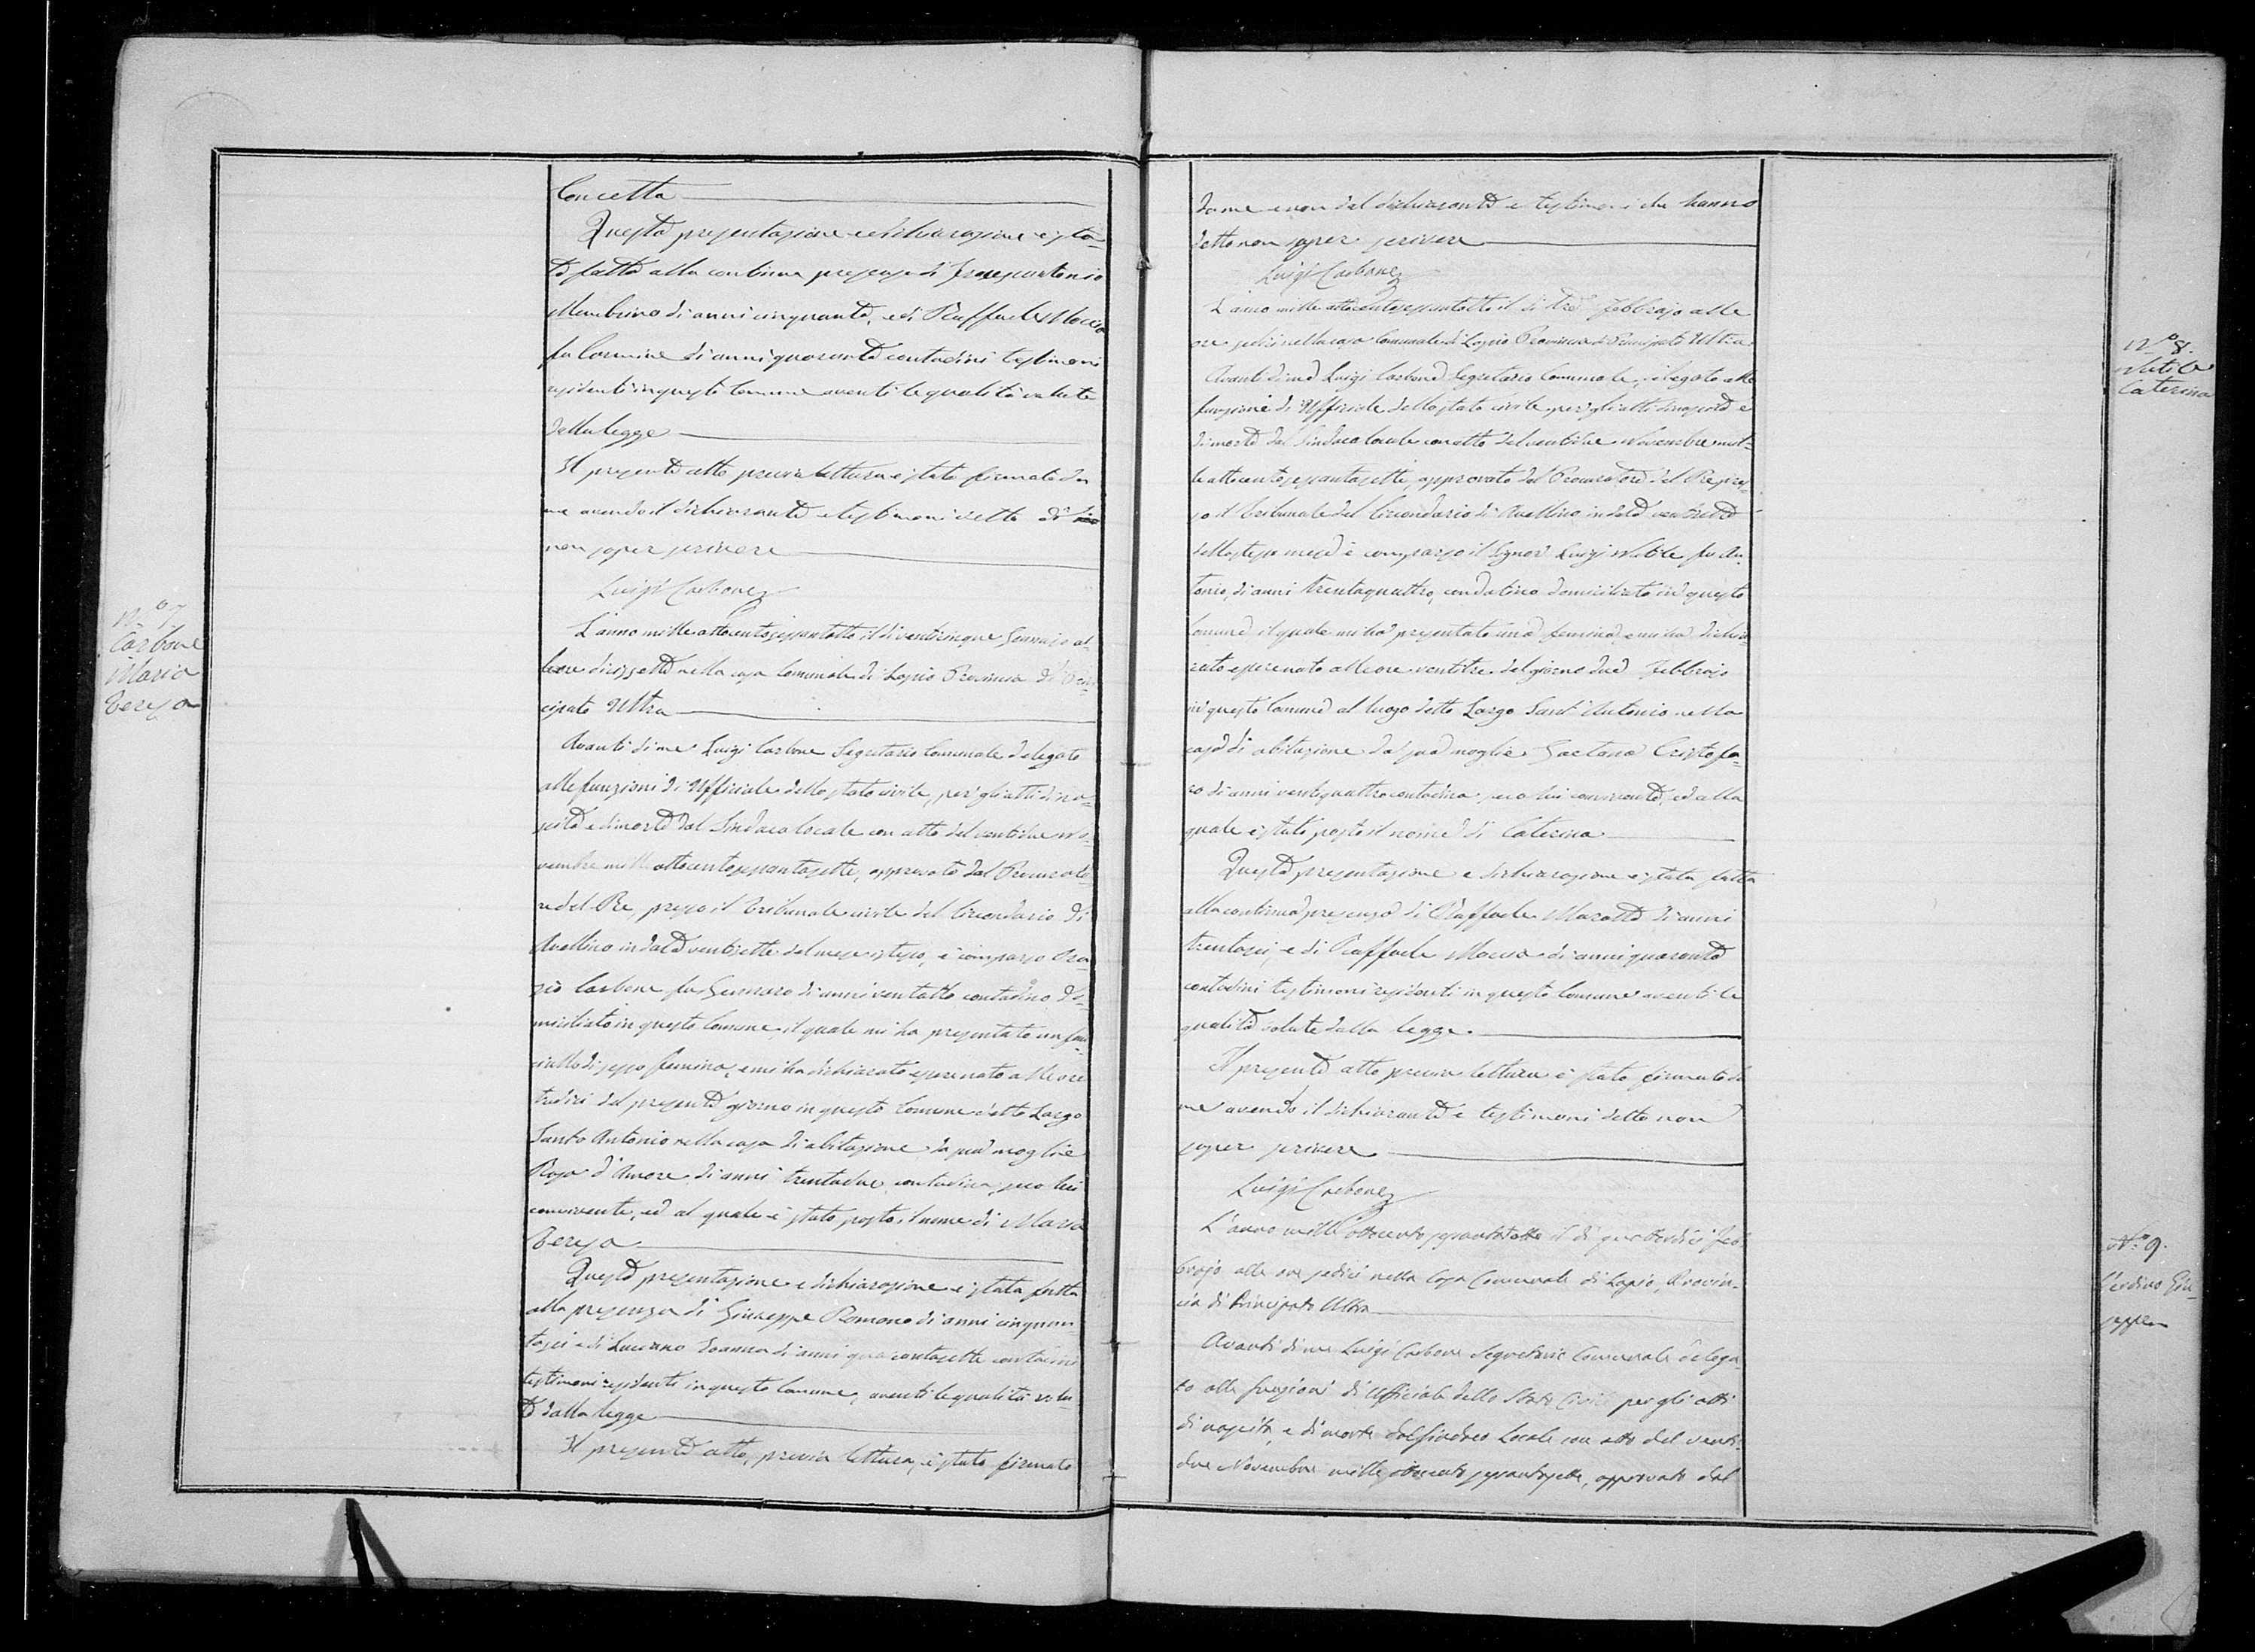 Concetta
Questa presentazione e dichiarazione è sta-
ta fatta alla continua presenza di
di anni cinquanta, e di Raffaele Moccia
fu Carmine di anni quaranta contadini testimoni
residenti in questo Comune aventi le qualità volute
dalla legge
Il presente atto previa lettura è stato firmato da
me avendo il dichiarante e testimoni detto di
non saper scrivere
Luigi Carbone
N.o 7.
Carbone
Maria
Teresa
L'anno mille ottocentosessantotto il dì venticinque Gennajo al-
le ore diciassette nella casa Comunale di Lapio Provincia di Prin-
cipato Ultra
Avanti di me Luigi Carbone Segretario Comunale delegato
alle funzioni di Uffiziale dello stato civile, per gli atti di na-
scita e di morte dal Sindaco locale con atto del ventidue No-
vembre mille ottocentosessantasette, approvato dal Procurato-
re del Re presso il Tribunale civile del Circondario di
Avellino in data ventisette del mese istesso, è comparso Ora-
zio Carbone fu Gennaro di anni ventotto contadino do-
miciliato in questo Comune, il quale mi ha presentato un fan-
ciullo di sesso femino, e mi ha dichiarato esser nato alle ore
tredici del presente giorno in questo Comune detto Largo
Santo Antonio nella casa di abitazione da sua moglie
Rosa d'Amore di anni trentadue contadina, seco lui
convivente, ed al quale è stato posto il nome di Maria
Teresa
Questa presentazione e dichiarazione è stata fatta
alla presenza di Giuseppe Romano di anni cinquan-
tasei e di Luciano di anni quarantasette contadini
testimoni residenti in questo Comune, aventi le qualità volu-
te dalla legge
Il presente atto, previa lettura, è stato firmato
da me e non dal dichiarante e testimoni che hanno
detto non saper scrivere
Luigi Carbone
N.o 8.
Nutile
Caterina
L'anno mille ottocentosessantotto il dì tre Febbrajo alle
ore sedici nella casa Comunale di Lapio Provincia di Principato Ultra
Avanti di me Luigi Carbone Segretario Comunale, delegato alle
funzioni di Uffiziale dello stato civile per gli atti di nascita e
di morte dal Sindaco locale con atto del ventidue Novembre mil-
le ottocentosessantasette, approvato dal Procuratore del Re pres-
so il Tribunale del Circondario di Avellino in data ventisette
dello stesso mese è comparso il Signor Luigi Nutile fu An-
tonio, di anni trentaquattro, contadino domiciliato in questo
Comune il quale mi ha presentato una femina, e mi ha dichia-
rato esser nata alle ore ventitre del giorno due Febbrajo
in questo Comune al luogo detto Largo Sant'Antonio nella
casa di abitazione da sua moglie Gaetana Cristofa-
ro di anni ventiquattro contadina, seco lui convivente, ed alla
quale è stato posto il nome di Caterina
Questa presentazione e dichiarazione è stata fatta
alla continua presenza di Raffaele di anni
trentasei, e di Raffaele Moccia di anni quaranta
contadini testimoni residenti in questo Comune aventi le
qualità volute dalla legge.
Il presente atto previa lettura è stato firmato da
me avendo il dichiarante e testimoni detto non
saper scrivere
Luigi Carbone
N.o 9.
Verdino Giu-
seppe
L'anno mille ottocento sessantotto il dì quattordici Feb-
brajo alle ore sedici nella Casa Comunale di Lapio, Provin-
cia di Principato Ultra
Avanti di me Luigi Carbone Segretario Comunale delega-
to alle funzioni di Uffiziale dello Stato Civile per gli atti
di nascita, e di morte dal Sindaco Locale con atto del venti-
due Novembre mille ottocento sessantasette, approvato dal